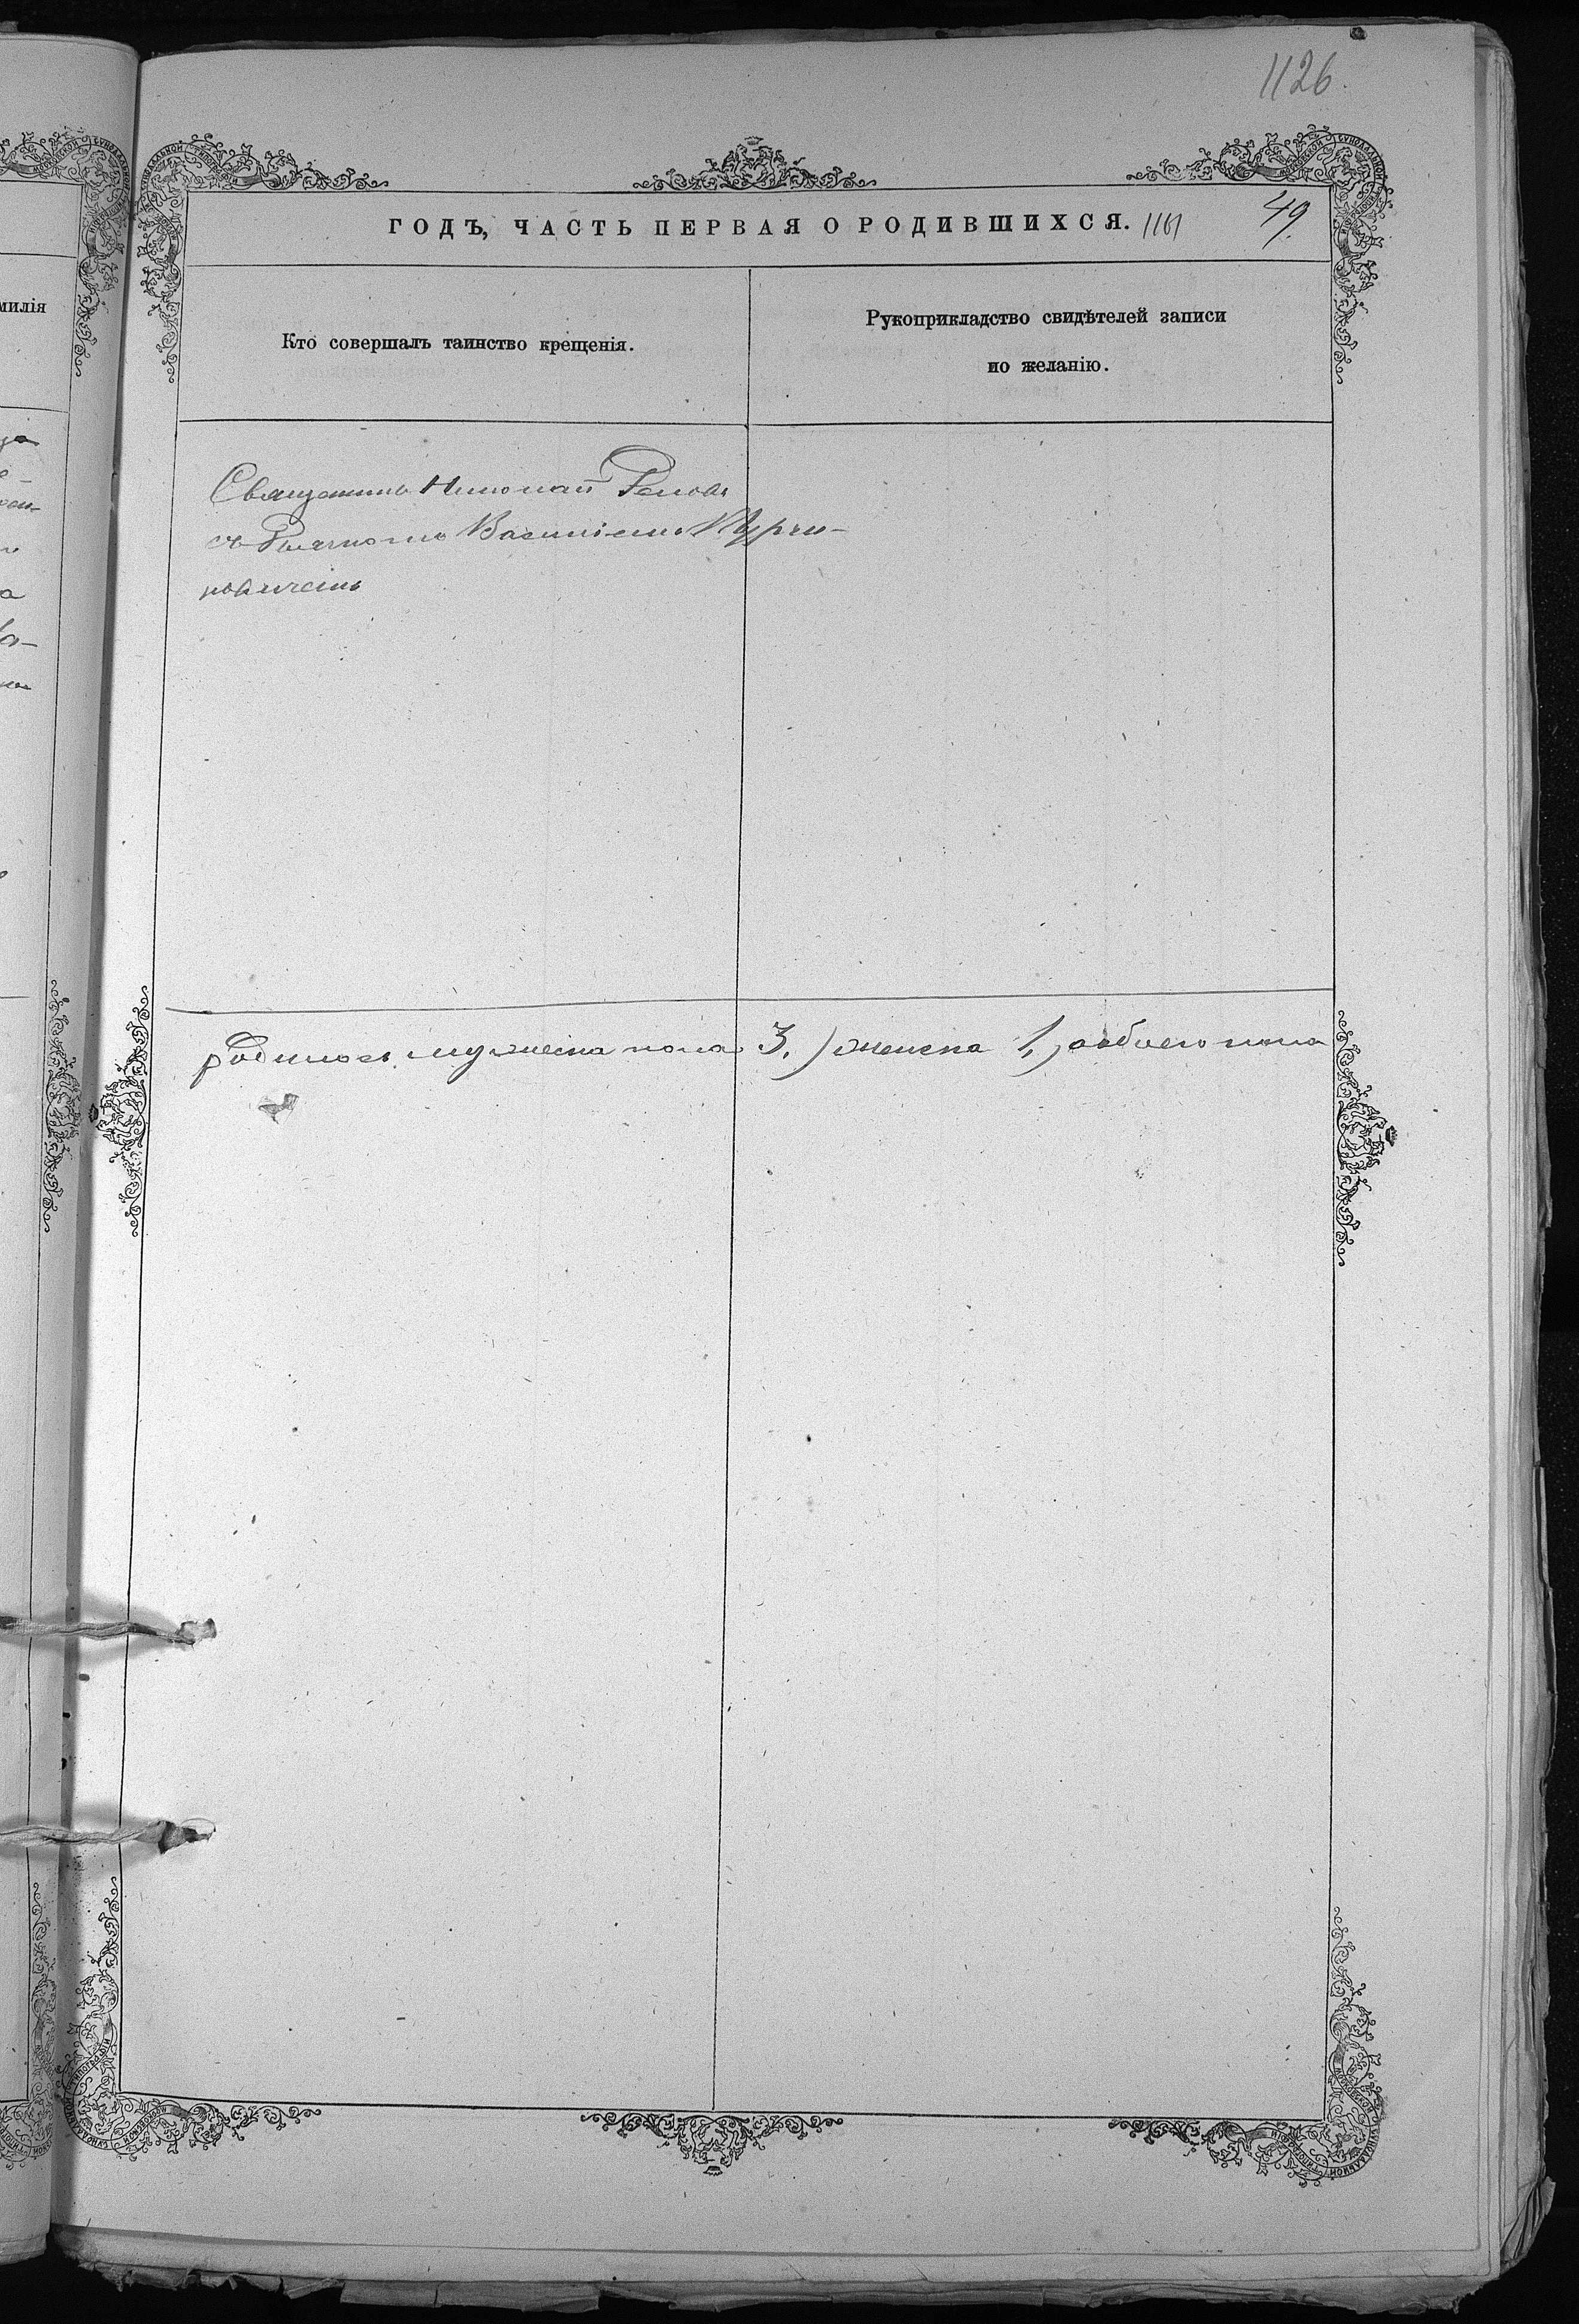 1126.
ГОДЪ, ЧАСТЬ ПЕРВАЯ О РОДИВШИХСЯ. 1161 49.
милія
Кто совершалъ таинство крещенія.
Рукоприкладство свидѣтелей записи
по желанію.
Священникъ Николай
съ Василіемъ Курчи-
новичемъ
родилось мужеска пола 3, женска 1, а обоего пола